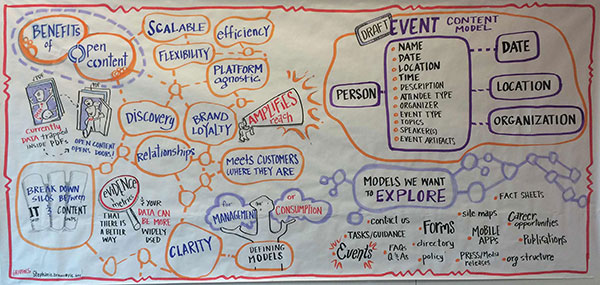 BENEFITS
of
Open
content
SCALABLE
efficiency
FLEXIBILITY
PLATFORM
agnostic
Discovery
BRAND
LOYALTY
AMPLIFIES
reach
Relationships
MEETS CUSTOMERS
WHERE THEY ARE
CURRENTLY
DATA trapped
INSIDE PDFs
OPEN CONTENT
OPENS DOORS!
BREAK DOWN
SILOS BETWEEN
IT & CONTENT
EVIDENCE
& metrics
THAT THERE IS
A BETTER
WAY
& YOUR
DATA CAN BE
MORE
WIDELY
USED
CLARITY
for
MANAGEMENT
or
CONSUMPTION
DEFINING
MODELS
DRAFT
EVENT CONTENT
MODEL
PERSON
NAME
DATE
LOCATION
TIME
DESCRIPTION
ATTENDEE TYPE
ORGANIZER
EVENT TYPE
TOPICS
SPEAKER(S)
EVENT ARTIFACTS
DATE
LOCATION
ORGANIZATION
MODELS WE WANT
TO EXPLORE
FACT SHEETS
contact us
TASKS/GUIDANCE
Events
FAQs
Q&As
Forms
directory
policy
site maps
MOBILE
APPS
PRESS/Media
releases
Career
opportunities
Publications
org structure